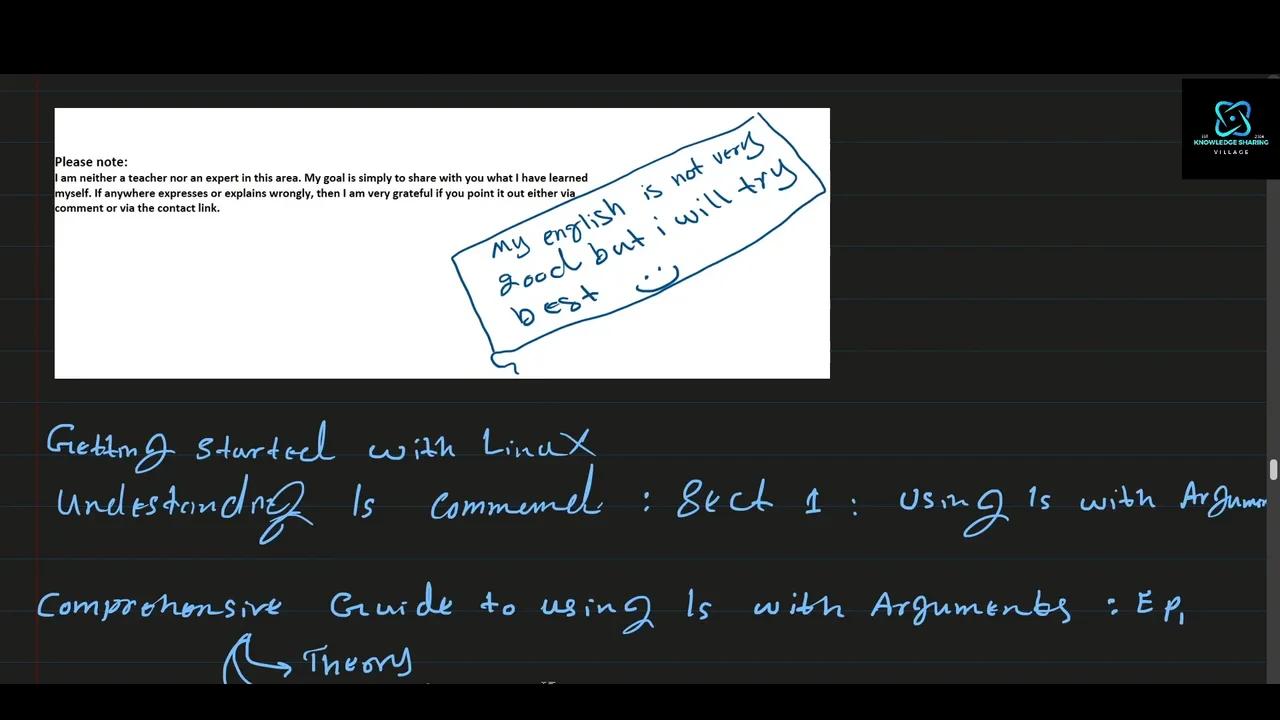 Please note:
I am neither a teacher nor an expert in this area. My goal is simply to share with you what I have learned
myself. If anywhere expresses or explains wrongly, then I am very grateful if you point it out either via
comment or via the contact link.
My english is not very
good but i will try
best
KNOWLEDGE SHARING
VILLAGE
Getting started with Linux
Undestanding ls commend : Sect 1 : using ls with Argumen
Comprehensive Guide to using ls with Arguments : Ep1
Theory